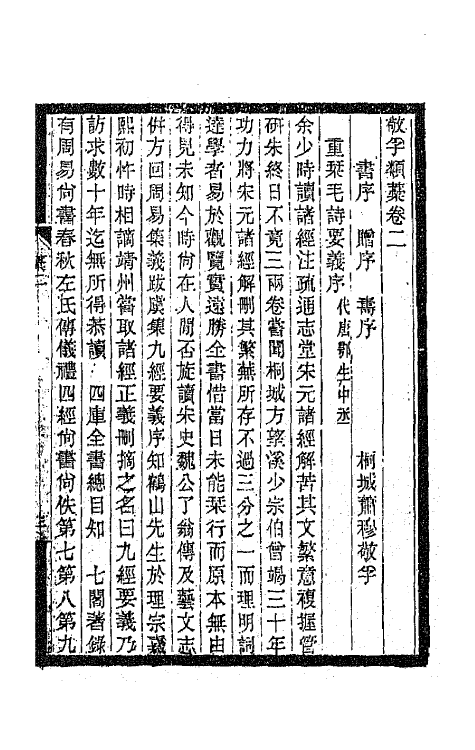 敬孚類藁卷二
書序　贈序　壽序　桐城蕭穆敬孚
重栞毛詩要義序　代唐鄂生中丞
余少時讀諸經注疏通志堂宋元諸經解苦其文繁意複握管
研朱終日不竟三兩卷嘗聞桐城方望溪少宗伯曾竭三十年
功力將宋元諸經解刪其繁蕪所存不過三分之一而理明詞
達學者易於觀覽實遠勝全書惜當日未能栞行而原本無由
得見未知今時尙在人閒否旋讀宋史魏公了翁傳及藝文志
併方回周易集義跋虞集九經要義序知鶴山先生於理宗嘉
熙初忤時相謫靖州嘗取諸經正義刪摘之名曰九經要義乃
訪求數十年迄無所得恭讀　四庫全書總目知　七閣著錄
有周易尙書春秋左氏傳儀禮四經尙書尙佚第七第八第九